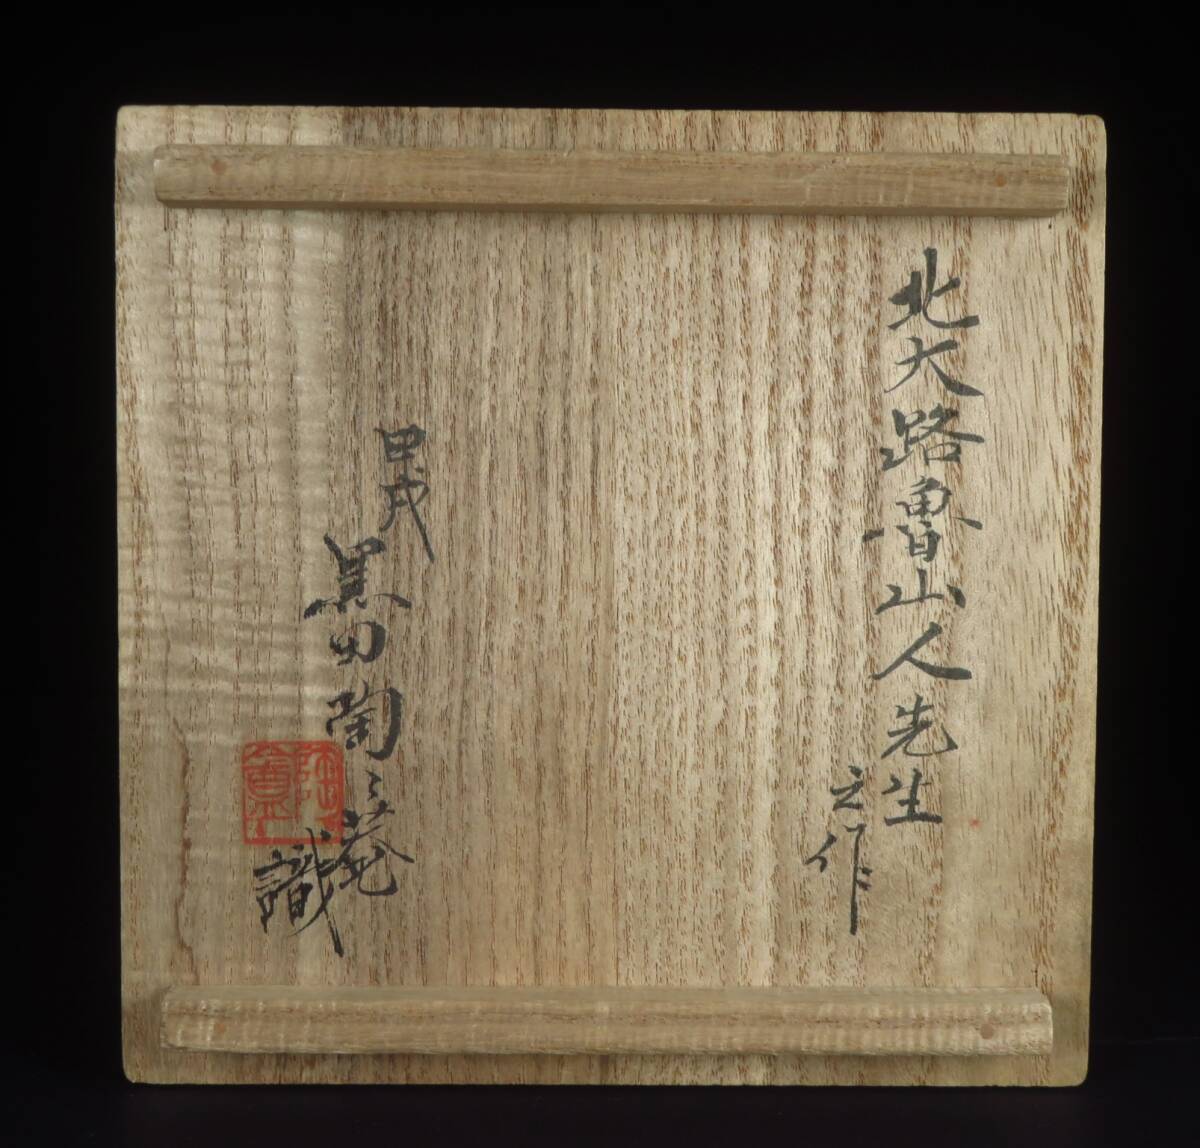 北大路魯山人先生
之作
甲戌
黒田陶々菴
識